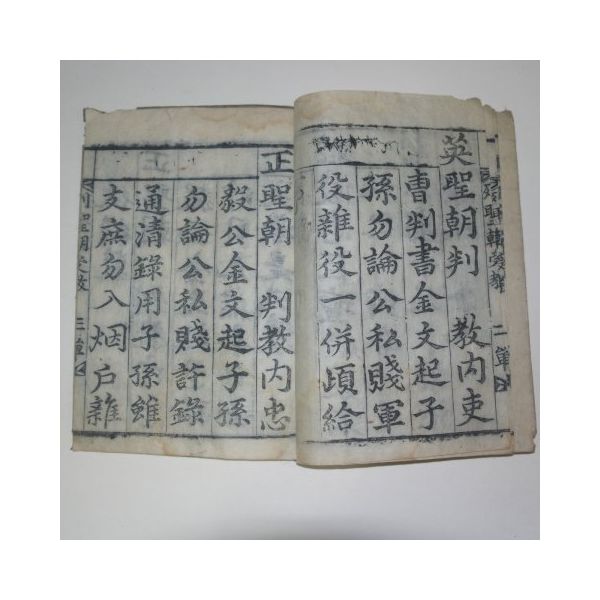 英聖朝判 教內吏
曹判書金文起子
孫勿論公私賤軍
役雜役一併頉給
二單
正聖朝 判教內忠
毅公金文起子孫
勿論公私賤許錄
通清錄用子孫雖
支庶勿入烟戶雜
三單